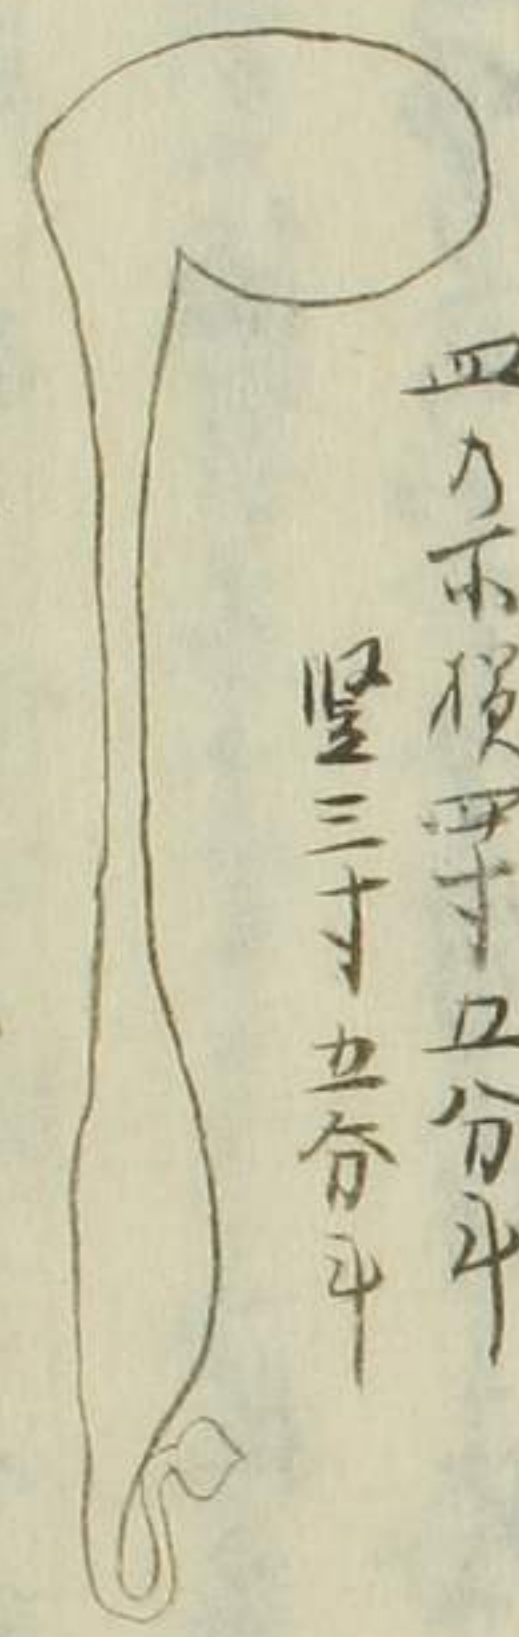 皿ノ所横四寸五分斗
竪三寸五分斗